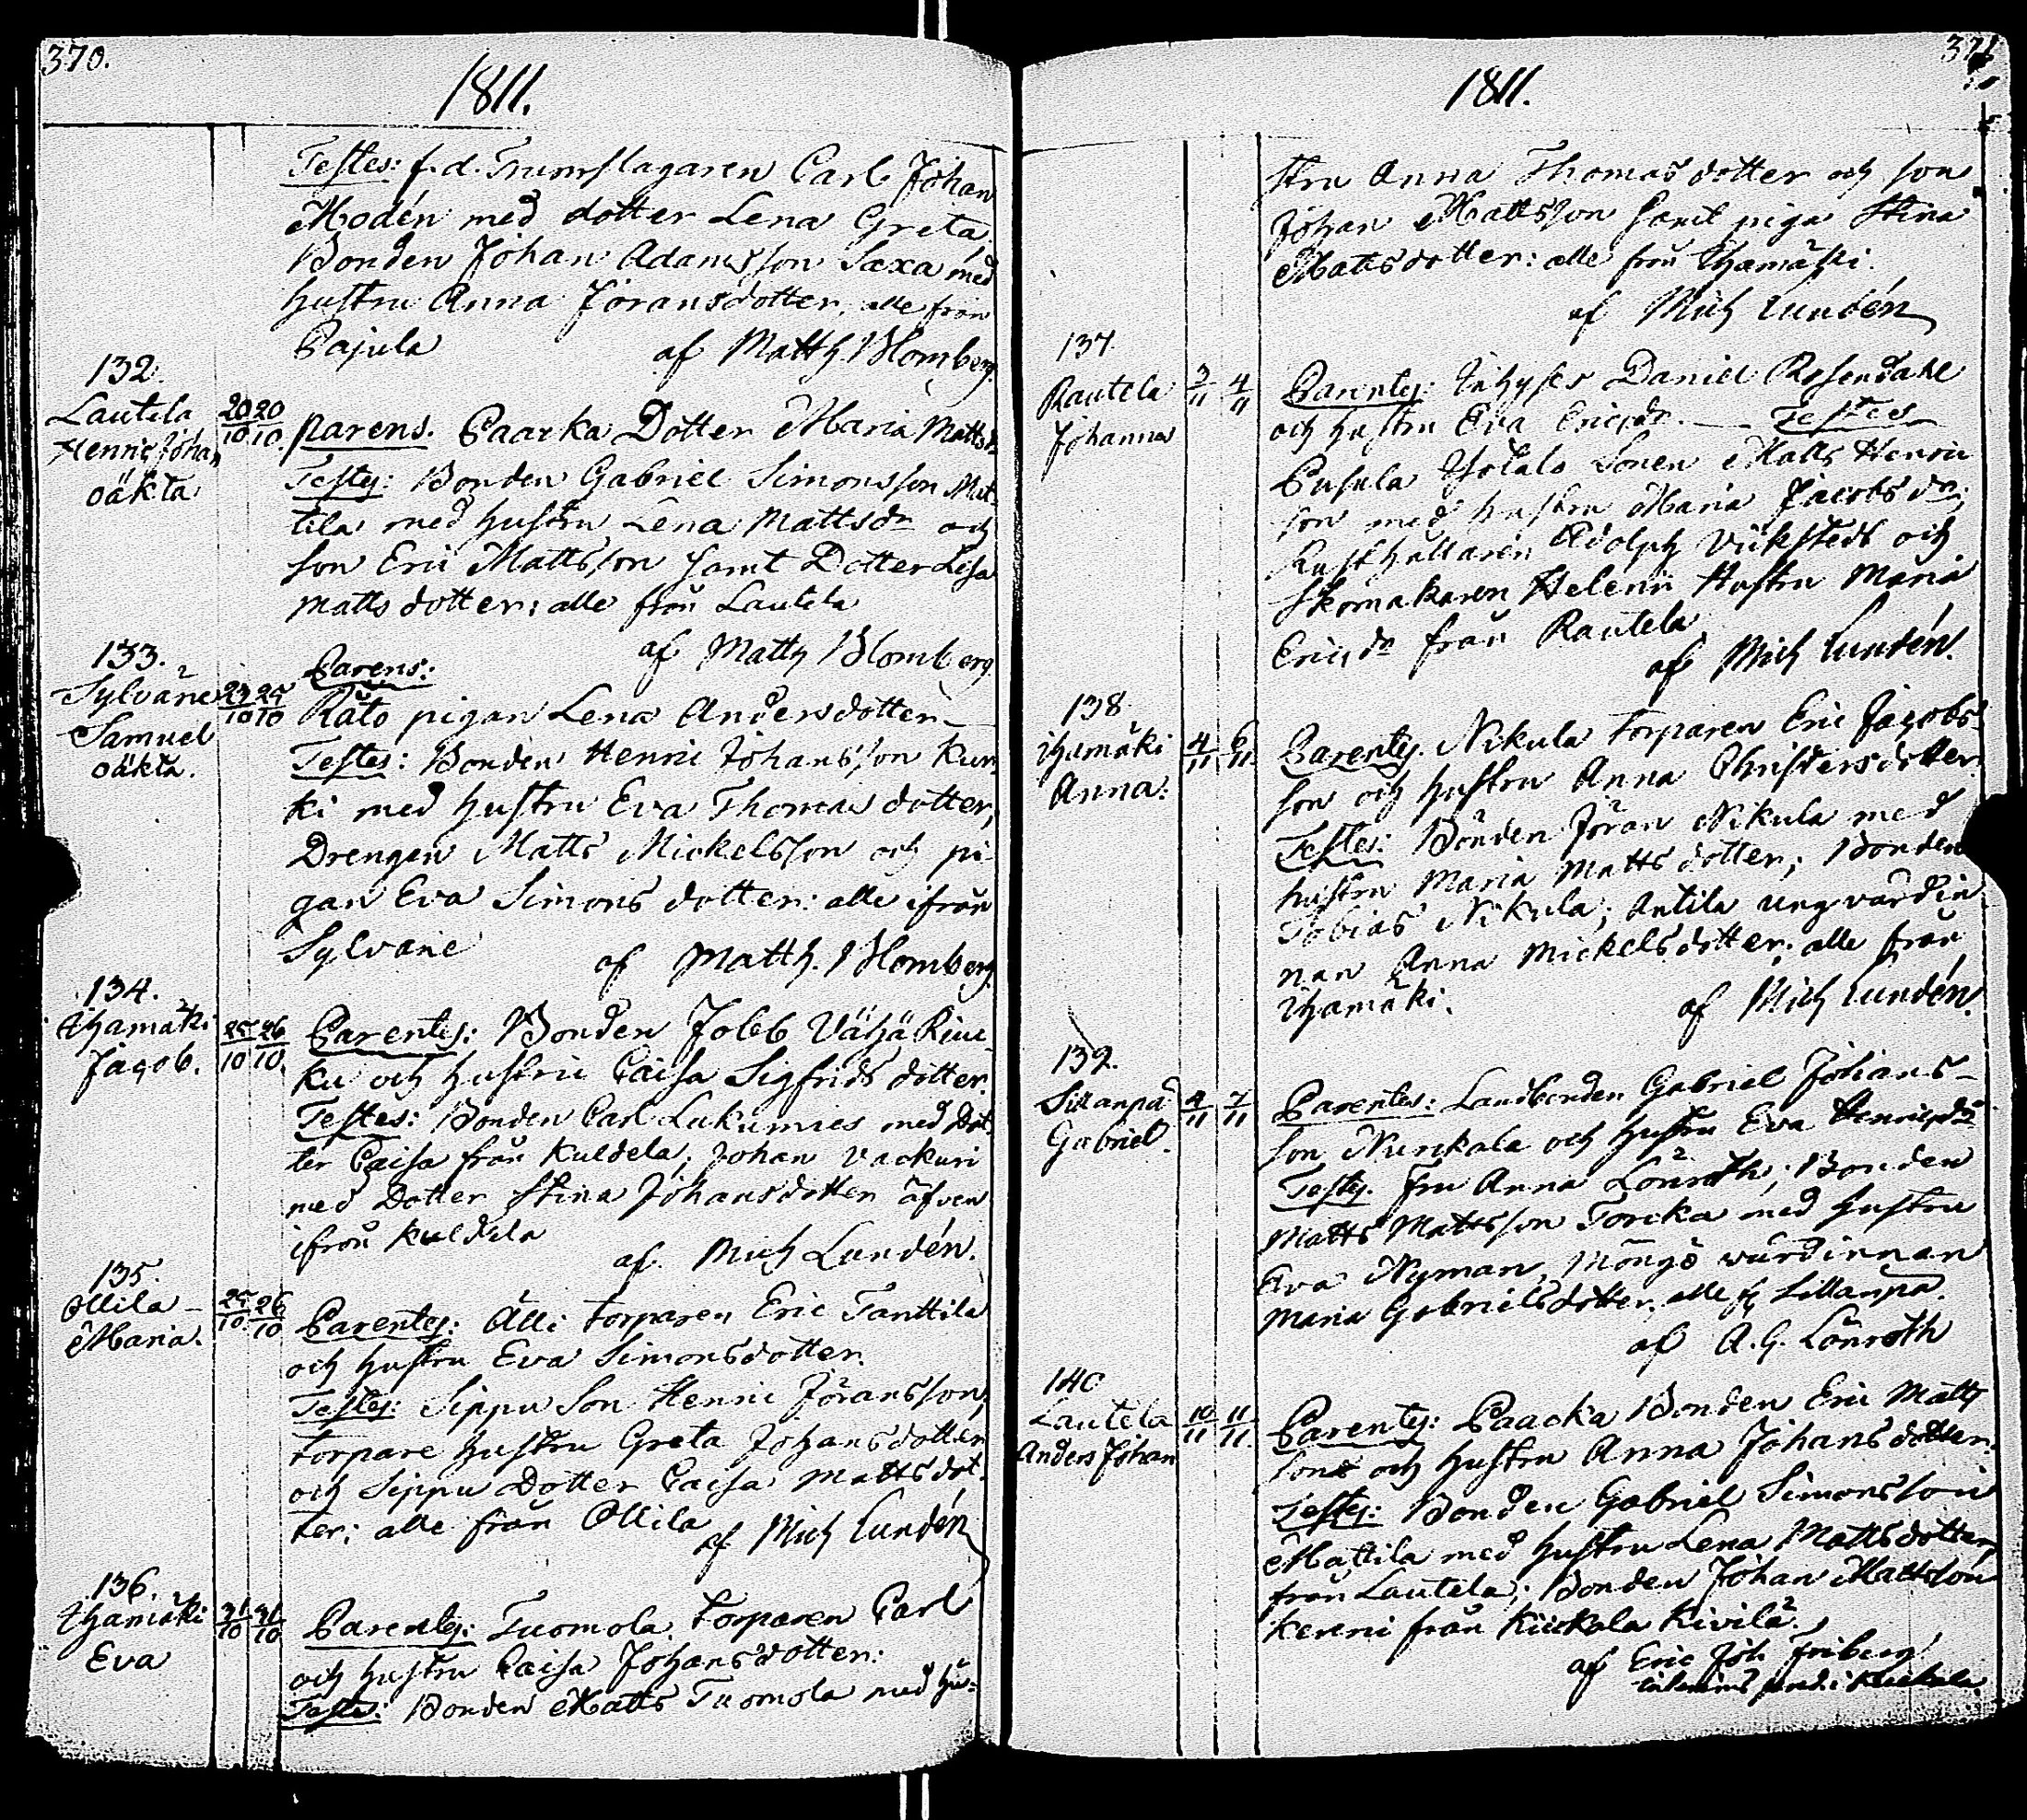 370.
1811.
Testes: f.d. Trumslagaren Carl Johan
Modén med dotter Lena Greta,
Bonden Johan Adamsson Saxa med
hustru Anna Jöransdotter, alle från
Pajula af Matth. Blomberg.
132.
Lautela
Henric Johan
oäkta
20/10 20/10.
Parens. Paacka Dotter Maria Mattsdr
Testes: Bonden Gabriel Simonsson Mat-
tila med hustru Lena Mattsdr och
son Eric Mattsson samt Dotter Lisa
Mattsdotter; alle från Lautela
af Matth Blomberg
133.
Sylväne
Samuel
oäkta.
23/10 25/10
Parens:
Råto pigan Lena Andersdotter
Testes: Bonden Henric Johansson Kur-
ki med hustru Eva Thomasdotter,
Drengen Matts Mickelsson och pi-
gan Eva Simonsdotter: alle ifrån
Sylväne af Matth. Blomberg.
134.
Ihamäki
Jacob.
25/10 26/10.
Parentes: Bonden Joseb Vähä Kiuc-
ku och hustru Caisa Sigfridsdotter.
Testes: Bonden Carl Lukumies med Dot-
ter Caisa från Kuldela; Johan Vackuri
med Dotter Stina Johansdotter äfven
ifrån Kuldela af Mich Lundén.
135.
Ollila
Maria.
25/10. 26/10
Parentes: Älli torparen Eric Tanttila
och hustru Eva Simonsdotter.
Testes: Sippu Son Henric Jöransson,
torpare hustru Greta Johansdotter
och Sippu Dotter Caisa Mattsdot-
ter; alle från Ollila
af Mich Lundén
136.
Ihamäki
Eva
31/10 31/10
Parentes: Tuomola torparen Carl
och hustru Caisa Johansdotter.
Testes: Bonden Matts Tuomola med hu-
371
1811.
stru Anna Thomasdotter och son
Johan Mattsson samt piga Stina
Mattsdotter: alle från Ihamäki.
af Mich Lundén
137.
Rautela
Johanna
3/11 4/11
Parentes: Inhyses Daniel Rosendahl
och hustru Eva Ericsdr. Testes
Pusula Isotalo Sonen Matts Henric
son med hustru Maria Jacobsdr;
Rusthållaren Adolph Vickstedt och
Skomakaren Helenii Hustru Maria
Ericsdr från Rautela
af Mich Lundén.
138.
Ihamäki
Anna:
4/11 6/11.
Parentes. Nikula torparen Eric Jacobs-
son och hustru Anna Christersdotter.
Testes: Bonden Jöran Nikula med
hustru Maria Mattsdotter; Bonden
Tobias Nikula; Antila ung värdin-
nan Anna Mickelsdotter; alle från
Ihamäki. af Mich Lundén.
139.
Sillanpä
Gabriel.
4/11 7/11
Parentes: Landbonden Gabriel Johans-
son Nurckala och hustru Eva Henricsdr
Testes. Fru Anna Lönroth; Bonden
Matts Mattsson Torcka med hustru
Eva Nyman, Möngö würdinnan
Maria Gabrielsdotter, alle fr Sillanpä.
af A. G. Lönroth
140
Lautela
Anders Johan
10/11 11/11.
Parentes: Paacka Bonden Eric Matts
son och hustru Anna Johansdotter.
Testes: Bonden Gabriel Simonsson
Mattila med hustru Lena Mattsdotter,
från Lautela; Bonden Johan Mattsson
Kenni från Kiickala Kivilä.
af Eric Joh Friberg